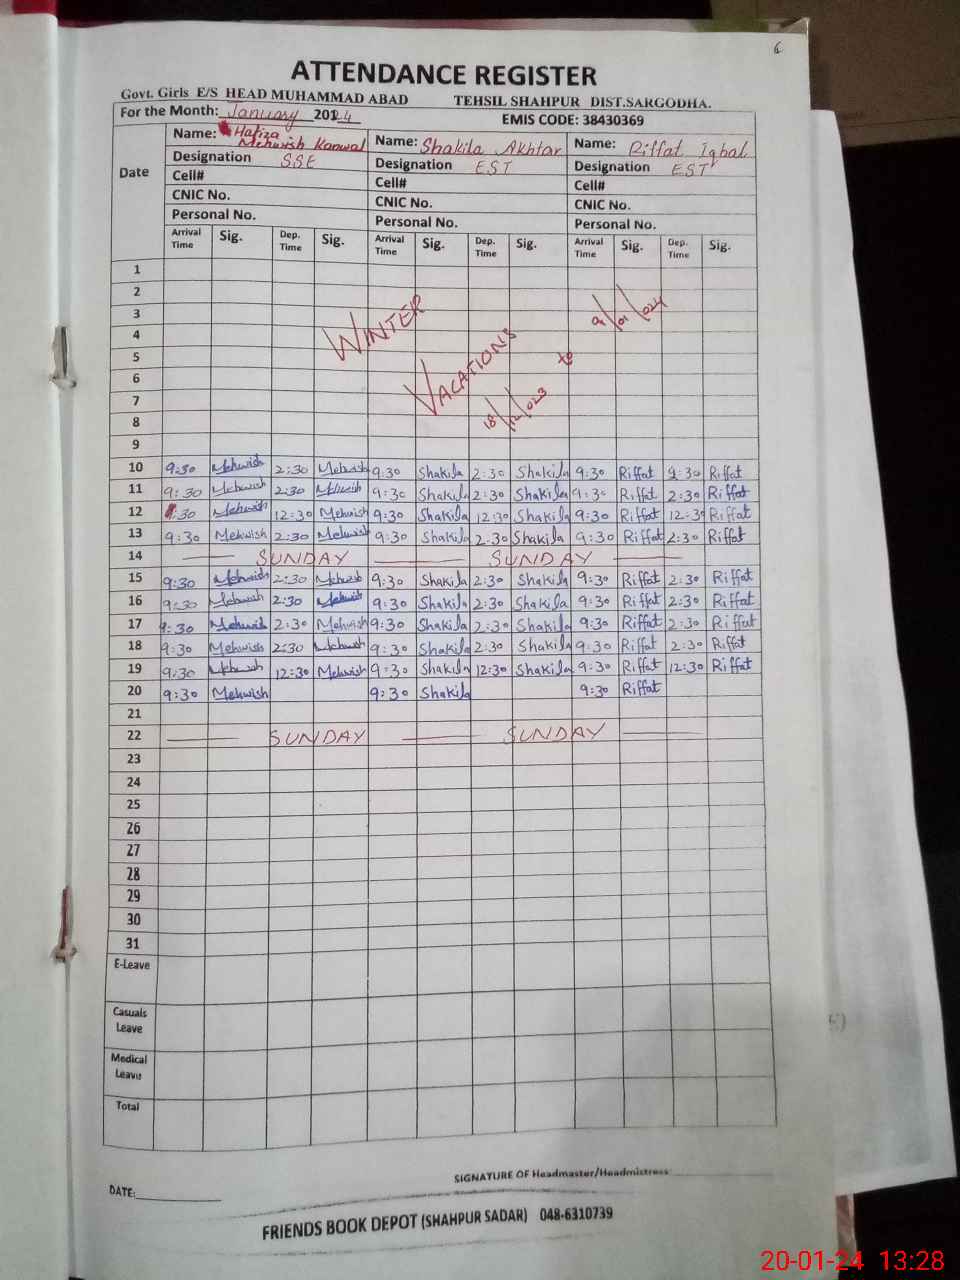 6
ATTENDANCE REGISTER
Govt. Girls E/S HEAD MUHAMMAD ABAD TEHSIL SHAHPUR DIST.SARGODHA.
For the Month: January 2024 EMIS CODE: 38430369
Date Name: Hafiza Mehwish Kanwal Name: Shakila Akhtar Name: Riffat Iqbal
Designation SSE Designation EST Designation EST
Cell# Cell# Cell#
CNIC No. CNIC No. CNIC No.
Personal No. Personal No. Personal No.
Arrival Time Sig. Dep. Time Sig. Arrival Time Sig. Dep. Time Sig. Arrival Time Sig. Dep. Time Sig.
1
2
3
4
5
6
7
8
9
WINTER
VACATIONS
18/12/023 to 9/01/024
10 9:30 Mehwish 2:30 Mehwish 9:30 Shakila 2:30 Shakila 9:30 Riffat 2:30 Riffat
11 9:30 Mehwish 2:30 Mehwish 9:30 Shakila 2:30 Shakila 9:30 Riffat 2:30 Riffat
12 9:30 Mehwish 12:30 Mehwish 9:30 Shakila 12:30 Shakila 9:30 Riffat 12:30 Riffat
13 9:30 Mehwish 2:30 Mehwish 9:30 Shakila 2:30 Shakila 9:30 Riffat 2:30 Riffat
14 SUNDAY SUNDAY
15 9:30 Mehwish 2:30 Mehwish 9:30 Shakila 2:30 Shakila 9:30 Riffat 2:30 Riffat
16 9:30 Mehwish 2:30 Mehwish 9:30 Shakila 2:30 Shakila 9:30 Riffat 2:30 Riffat
17 9:30 Mehwish 2:30 Mehwish 9:30 Shakila 2:30 Shakila 9:30 Riffat 2:30 Riffat
18 9:30 Mehwish 2:30 Mehwish 9:30 Shakila 2:30 Shakila 9:30 Riffat 2:30 Riffat
19 9:30 Mehwish 12:30 Mehwish 9:30 Shakila 12:30 Shakila 9:30 Riffat 12:30 Riffat
20 9:30 Mehwish 9:30 Shakila 9:30 Riffat
21
22 SUNDAY SUNDAY
23
24
25
26
27
28
29
30
31
E-Leave
Casuals Leave
Medical Leave
Total
SIGNATURE OF Headmaster/Headmistress
DATE:
FRIENDS BOOK DEPOT (SHAHPUR SADAR) 048-6310739
20-01-24 13:28